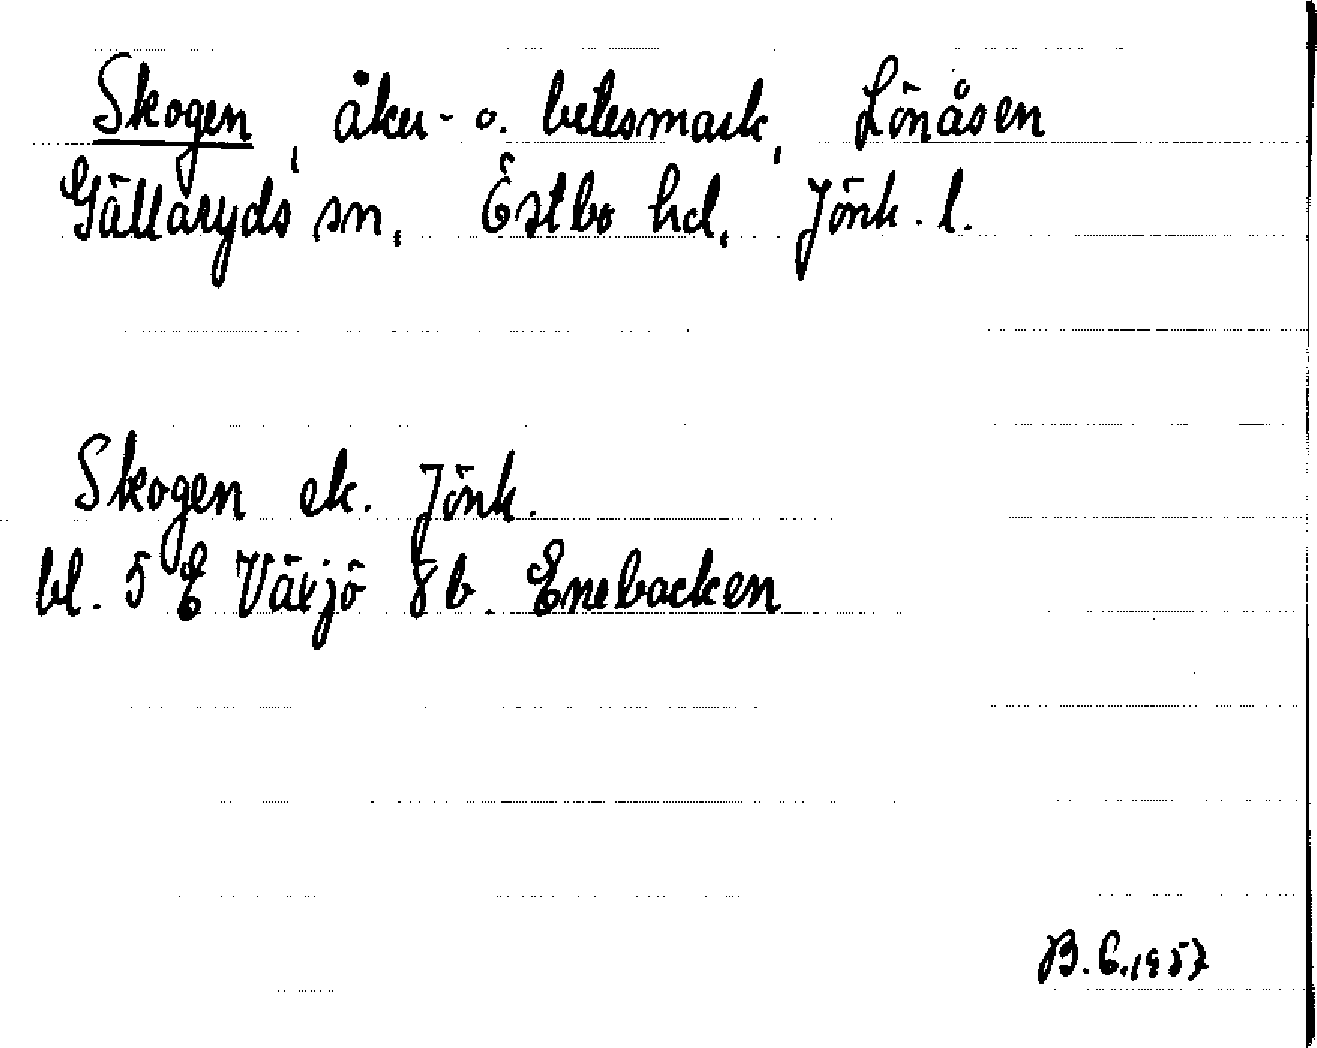 Skogen, åker- o. betesmark, Lönåsen
Gällaryds sn, Östbo hd, Jönk. l.
Skogen ek. Jönk.
bl. 5 E Växjö 8b. Enebacken
B.G.1957